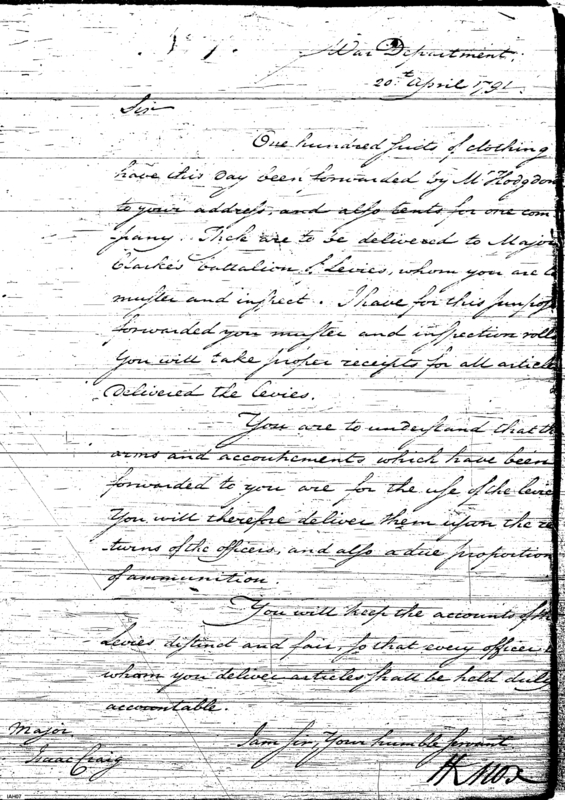 War Department,
20th April 1791.
Sir
One hundred suits of clothing
have this day been forwarded by Mr Hodgdon
to your address, and also tents for one com
pany. These are to be delivered to Major
Clarke's battalion of Levies, whom you are to
muster and inspect. I have for this purpose
forwarded you muster and inspection roll
You will take proper receipts for all article
delivered the levies.
You are to understand that the
arms and accoutrements which have been
forwarded to you are for the use of the levie
You will therefore deliver them upon the re
turns of the officers, and also a due proportion
of ammunition.
You will keep the accounts of the
Levies distinct and fair, so that every officer
whom you deliver articles shall be held duly
accountable.
I am Sir, Your humble servant
HKnox
Major
Isaac Craig
IAH07